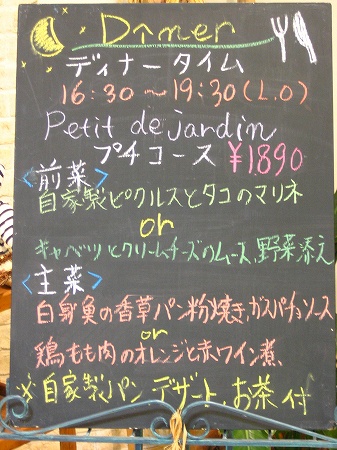 Dîner
ディナータイム
16:30〜19:30(L.O)
Petit de jardin
プチコース ¥1890
<前菜>
自家製ピクルスとタコのマリネ
or
キャベツとクリームチーズのムース、野菜添え
<主菜>
白身魚の香草パン粉焼き、ガスパチョソース
or
鶏もも肉のオレンジと赤ワイン煮、
※自家製パン デザート、お茶付